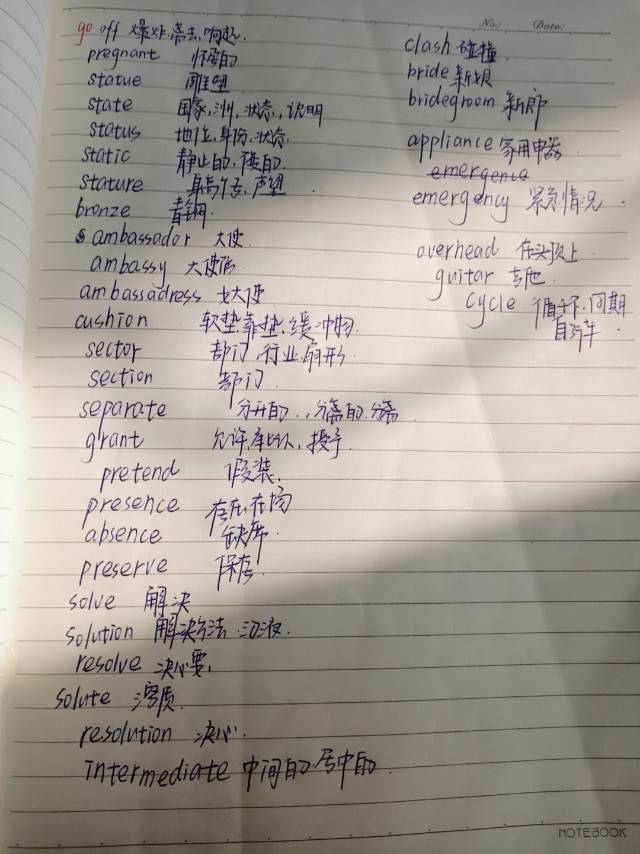 No: Date:
go off 爆炸,离去,响起.
pregnant 怀孕的
statue 雕塑
state 国家,洲,状态,说明
status 地位,身份,状态.
static 静止的,静的.
stature 身高,声望.
bronze 青铜
ambassador 大使.
ambassy 大使馆
ambassadress 女大使
cushion 软垫,靠垫,缓冲物.
sector 部门,行业,扇形.
section 部门.
separate 分开的,,分离的.分离
grant 允许,授予.
pretend 假装.
presence 存在,在场
absence 缺席.
preserve 保存.
solve 解决
solution 解决方法.
resolve 决心要.
solute 溶质.
resolution 决心.
intermediate 中间的,居中的.
clash 碰撞.
bride 新娘
bridegroom 新郎
appliance 家用电器
emergence
emergency 紧急情况.
overhead 在头顶上
guitar 吉他
cycle 循环.周期
自行车
NOTEBOOK